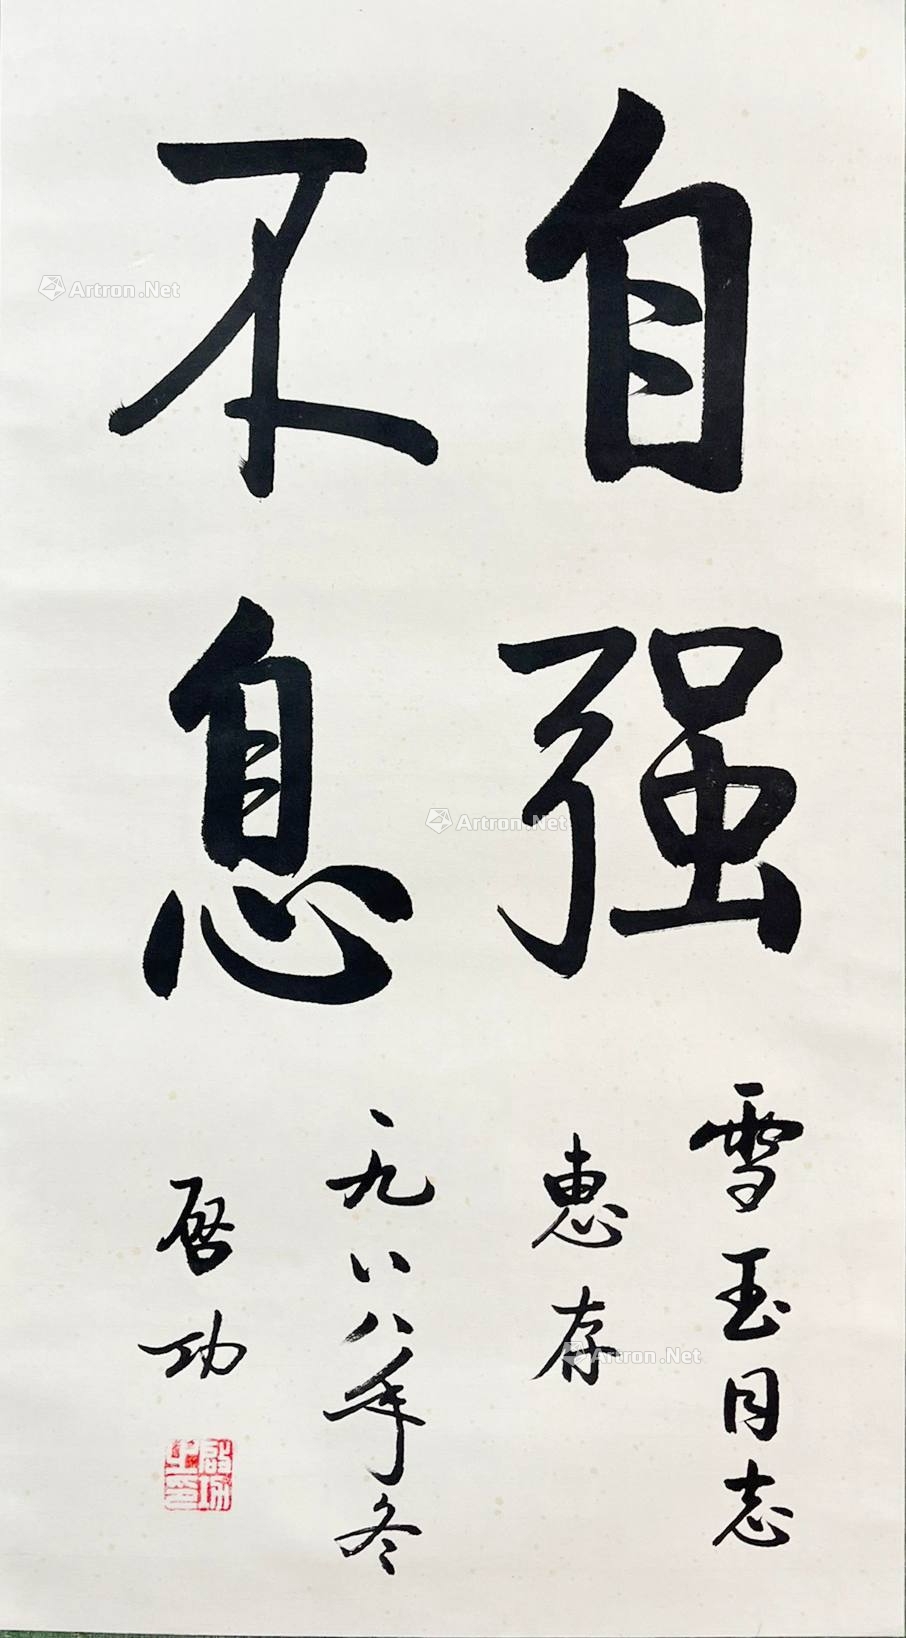 自强
不息
雪玉同志
惠存
一九八八年冬
启功
启功之印
Artron.Net
Artron.Net
Artron.Net